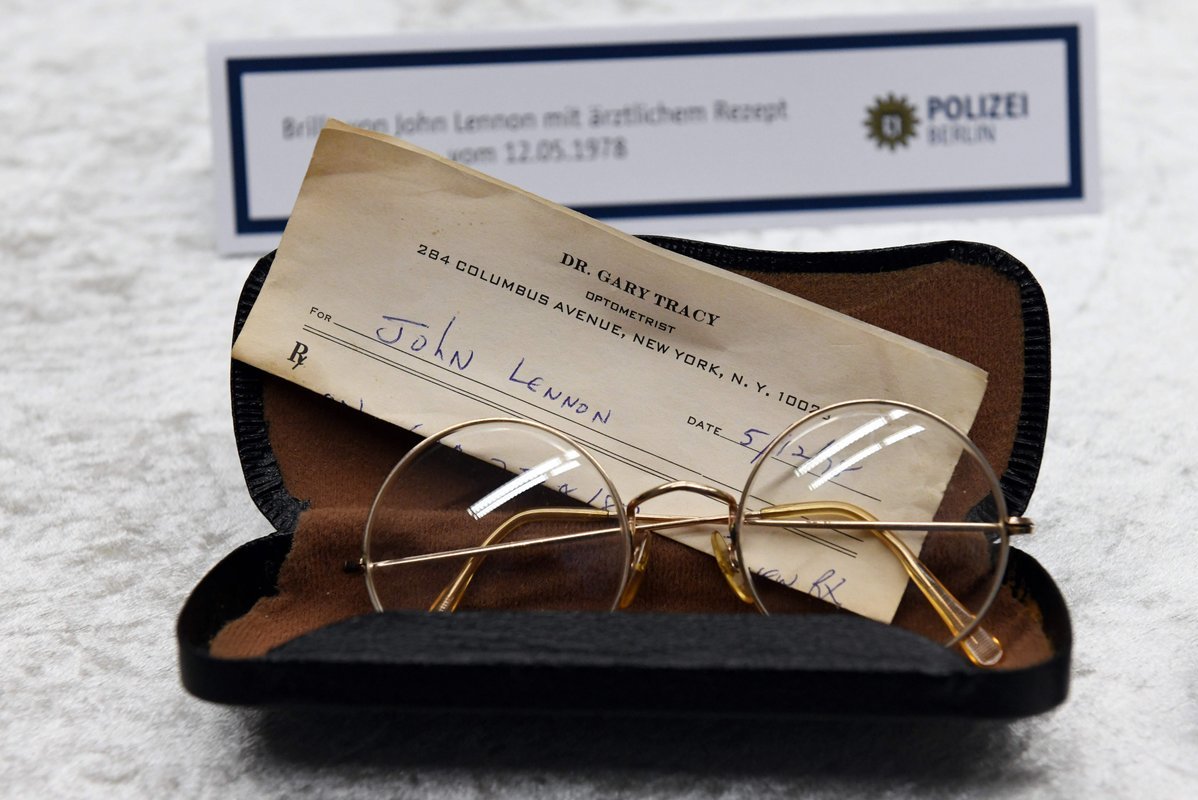 von John Lennon mit ärztlichem Rezept
vom 12.05.1978
POLIZEI
BERLIN
DR. GARY TRACY
OPTOMETRIST
284 COLUMBUS AVENUE, NEW YORK, N. Y.
FOR John LENNON
DATE 5/12/
Rx
Rx